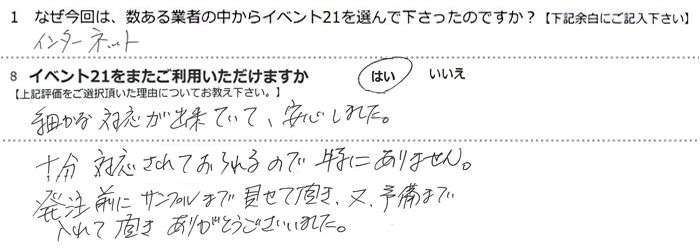 1 なぜ今回は、数ある業者の中からイベント21を選んで下さったのですか？【下記余白にご記入下さい】
インターネット
8 イベント21をまたご利用いただけますか はい いいえ
【上記評価をご選択頂いた理由についてお教え下さい。】
細かな対応が出来ていて、安心しました。
十分対応されておられるので特にありません。
発注前にサンプルまで見せて頂き、又、予備まで
入れて頂きありがとうございました。